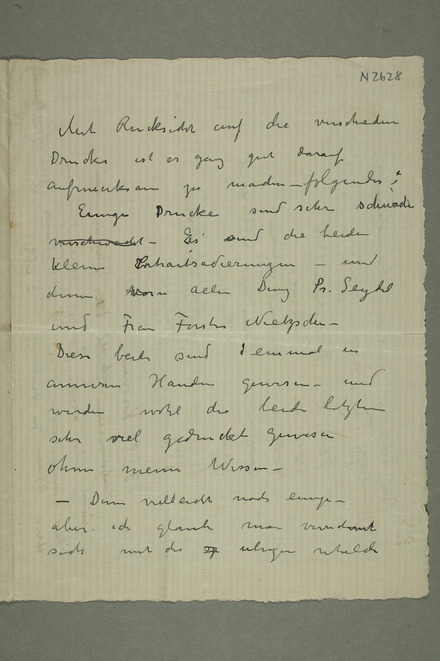 N2628
Mit Rücksicht auf die verschieden
Drucke ist es ganz gut darauf
aufmerksam zu machen – folgendes:
Einige Drucke sind sehr schwach
verschwacht – Es sind die beiden
kleinen Porträtradierungen – und
dann vor allen Ding Pr. Seydel
und Frau Förster Nietzsche –
Diese beide sind 1 einmal in
anneren Handen gewesen – und
werden wohl die beide letzten
sehr viel gedruckt gewesen
ohne meine Wissen –
– Dann vielleicht noch einige –
aber ich glaube man
sich mit die übrigen